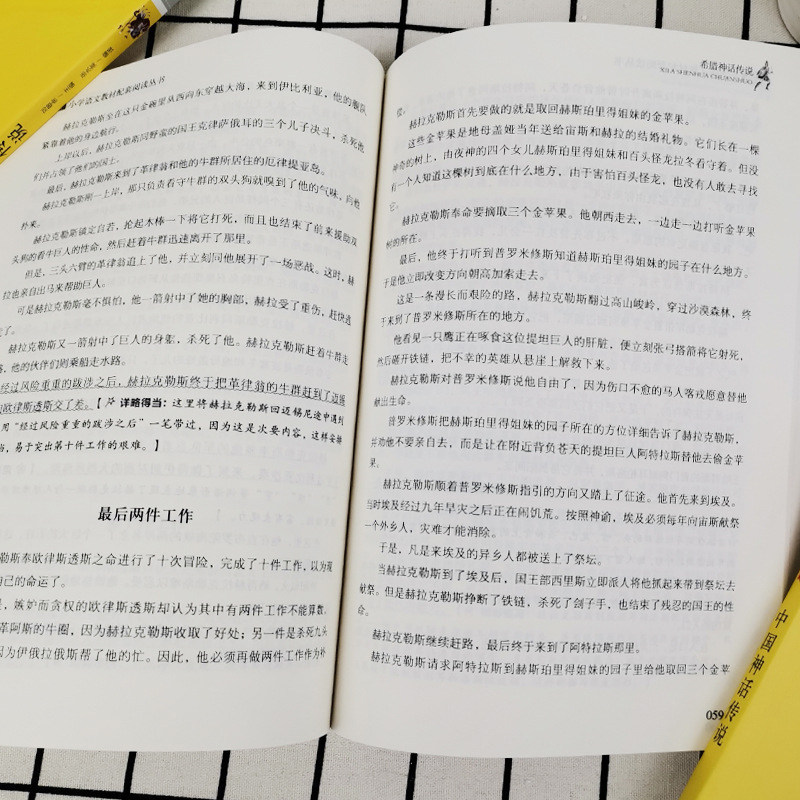 小学语文教材配套阅读丛书
赫拉克勒斯坐在这只金碗里从西向东穿越大海，来到伊比利亚，他的舰队
紧靠着他的身边航行。
上岸以后，赫拉克勒斯同野蛮的国王克律萨俄耳的三个儿子决斗，杀死他
们并占领了他们的国土。
最后，赫拉克勒斯来到了革律翁和他的牛群所居住的厄律提亚岛。
赫拉克勒斯刚一上岸，那只负责看守牛群的双头狗就嗅到了他的气味，向他
扑来。
赫拉克勒斯镇定自若，抡起木棒一下将它打死，而且也结束了前来援助双
头狗的看牛巨人的性命，然后赶着牛群迅速离开了那里。
但是，三头六臂的革律翁追上了他，并立刻同他展开了一场恶战。这时，赫
拉也亲自出马来帮助巨人。
可是赫拉克勒斯毫不惧怕，他一箭射中了她的胸部，赫拉受了重伤，赶快逃
走了。
赫拉克勒斯又一箭射中了巨人的身躯，杀死了他。赫拉克勒斯赶着牛群走
路，他的伙伴们则乘船走水路。
经过风险重重的跋涉之后，赫拉克勒斯终于把革律翁的牛群赶到了迈锡
的欧律斯透斯交了差。【详略得当：这里将赫拉克勒斯回迈锡尼途中遇到
用“经过风险重重的跋涉之后”一笔带过，因为这是次要内容，这样安排
当，易于突出第十件工作的艰难。】
最后两件工作
勒斯奉欧律斯透斯之命进行了十次冒险，完成了十件工作，以为现
自己的命运了。
是，嫉妒而贪权的欧律斯透斯却认为其中有两件工作不能算数。
革阿斯的牛圈，因为赫拉克勒斯收取了好处；另一件是杀死九头
因为伊俄拉俄斯帮了他的忙。因此，他必须再做两件工作作为补
希腊神话传说
XILA SHENHUA CHUANSHUO
偿。
赫拉克勒斯首先要做的就是取回赫斯珀里得姐妹的金苹果。
这些金苹果是地母盖娅当年送给宙斯和赫拉的结婚礼物。它们长在一棵
神奇的树上，由夜神的四个女儿赫斯珀里得姐妹和百头怪龙拉冬看守着。但没
有一个人知道这棵树到底在什么地方，由于害怕百头怪龙，也没有人敢去寻找
它。
赫拉克勒斯奉命要摘取三个金苹果。他朝西走去，一边走一边打听金苹果
树的所在。
最后，他终于打听到普罗米修斯知道赫斯珀里得姐妹的园子在什么地方。
于是他立即改变方向朝高加索走去。
这是一条漫长而艰险的路，赫拉克勒斯翻过高山峻岭，穿过沙漠森林，终
于来到了普罗米修斯所在的地方。
他看见一只鹰正在啄食这位提坦巨人的肝脏，便立刻张弓搭箭将它射死，
然后砸开铁链，把不幸的英雄从悬崖上解救下来。
赫拉克勒斯对普罗米修斯说他自由了，因为伤口不愈的马人喀戎愿意替他
献出生命。
普罗米修斯把赫斯珀里得姐妹的园子所在的方位详细告诉了赫拉克勒斯，
并劝他不要亲自去，而是让在附近背负苍天的提坦巨人阿特拉斯替他去偷金苹
果。
赫拉克勒斯顺着普罗米修斯指引的方向又踏上了征途。他首先来到埃及。
当时埃及经过九年旱灾之后正在闹饥荒。按照神谕，埃及必须每年向宙斯献祭
一个外乡人，灾难才能消除。
于是，凡是来埃及的异乡人都被送上了祭坛。
当赫拉克勒斯到了埃及后，国王部西里斯立即派人将他抓起来带到祭坛去
献祭。但是赫拉克勒斯挣断了铁链，杀死了刽子手，也结束了残忍的国王的性
命。
赫拉克勒斯继续赶路，最后终于来到了阿特拉斯那里。
赫拉克勒斯请求阿特拉斯到赫斯珀里得姐妹的园子里给他取回三个金苹
059
中国神话传说